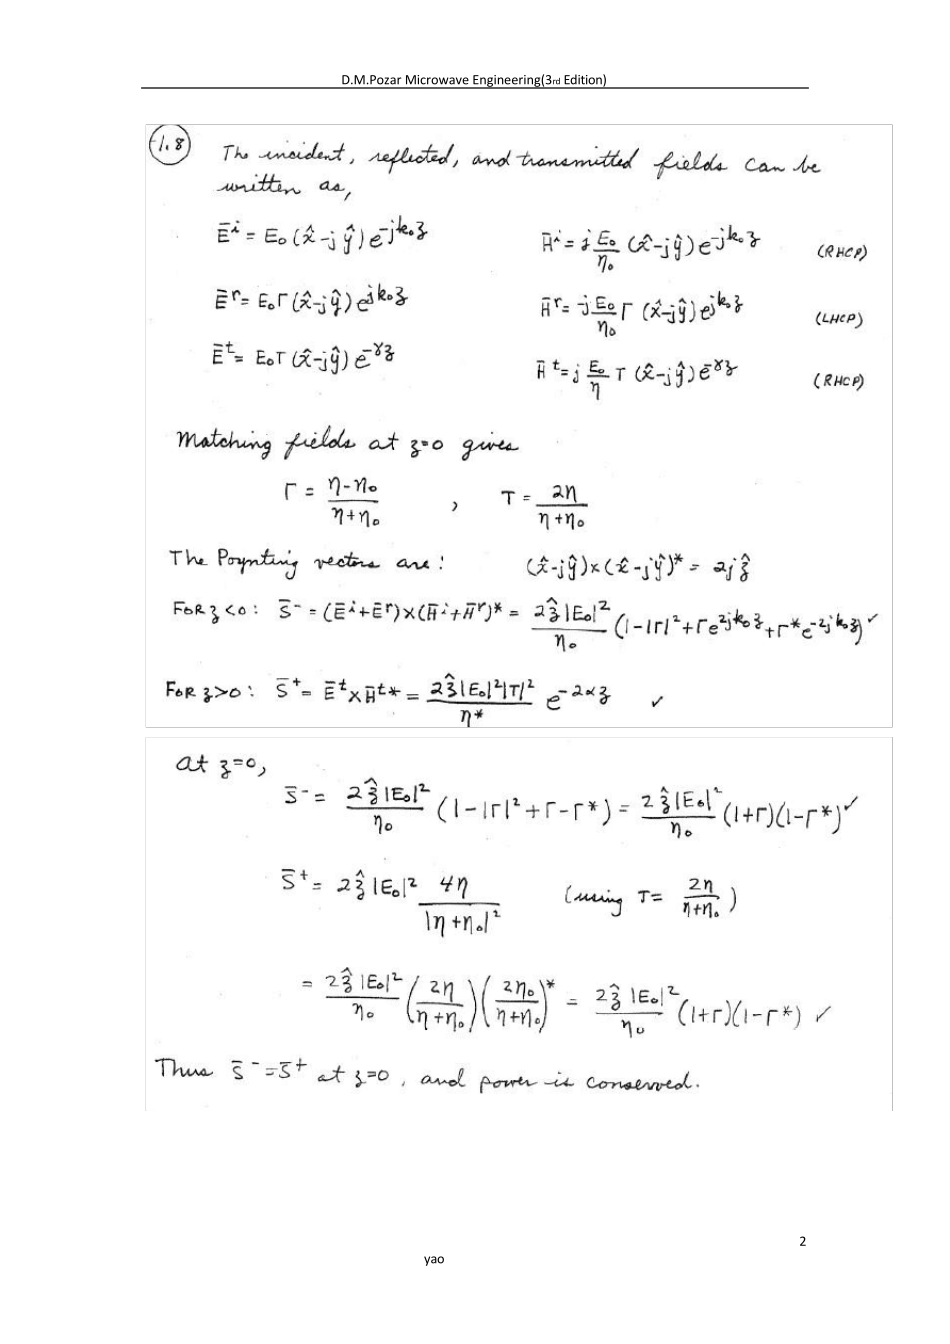 D.M.Pozar Microwave Engineering(3rd Edition)
1.8 The incident, reflected, and transmitted fields can be
written as,
Ēⁱ = E₀(x̂-jŷ)e^-jk₀z   H̄ⁱ = j E₀/η₀ (x̂-jŷ)e^-jk₀z   (RHCP)
Ēʳ = E₀Γ(x̂-jŷ)e^jk₀z   H̄ʳ = -j E₀/η₀ Γ (x̂-jŷ)e^jk₀z   (LHCP)
Ēᵗ = E₀T(x̂-jŷ)e^-γz   H̄ᵗ = j E₀/η T (x̂-jŷ)e^-γz   (RHCP)
Matching fields at z=0 gives
Γ = (η-η₀)/(η+η₀) , T = 2η/(η+η₀)
The Poynting vectors are: (x̂-jŷ)×(x̂-jŷ)* = 2jẑ
FOR z<0: S̄⁻ = (Ēⁱ+Ēʳ)×(H̄ⁱ+H̄ʳ)* = 2ẑ|E₀|²/η₀ (1-|Γ|²+Γe^2jk₀z+Γ*e^-2jk₀z) ✓
FOR z>0: S̄⁺ = Ēᵗ×H̄ᵗ* = 2ẑ|E₀|²|T|²/η* e^-2αz ✓
at z=0,
S̄⁻ = 2ẑ|E₀|²/η₀ (1-|Γ|²+Γ-Γ*) = 2ẑ|E₀|²/η₀ (1+Γ)(1-Γ*) ✓
S̄⁺ = 2ẑ|E₀|² 4η/|η+η₀|² (using T = 2η/(η+η₀))
= 2ẑ|E₀|²/η₀ (2η/(η+η₀)) (2η₀/(η+η₀))* = 2ẑ|E₀|²/η₀ (1+Γ)(1-Γ*) ✓
Thus S̄⁻=S̄⁺ at z=0, and power is conserved.
2
yao